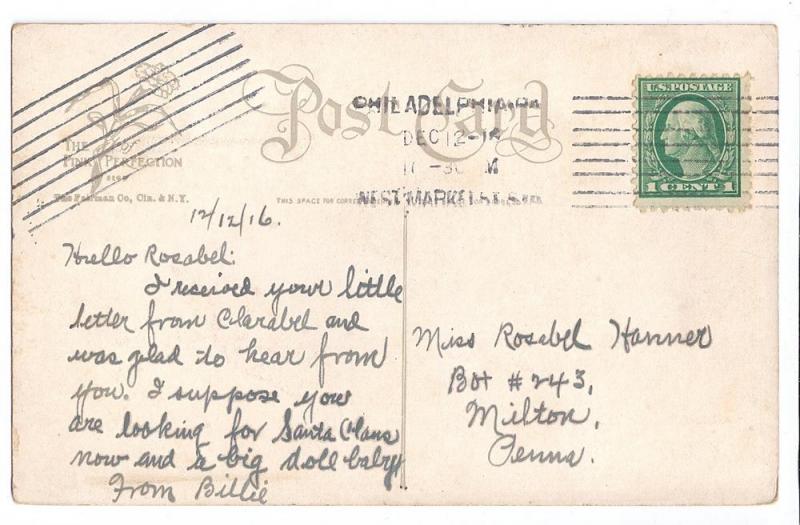 THE
PINK of PERFECTION
The Fairman Co, Cin. & N.Y.
Post Card
THIS SPACE FOR
PHILADELPHIA, PA
DEC 12
M
WEST MARKET ST. STA
U.S. POSTAGE
1 CENT 1
12/12/16.
Hello Rosabel:
I received your little
letter from Clarabel and
was glad to hear from
you. I suppose you
are looking for Santa Claus
now and a big doll baby
From Billie
Miss Rosabel Hanner
Box #243,
Milton,
Penna.